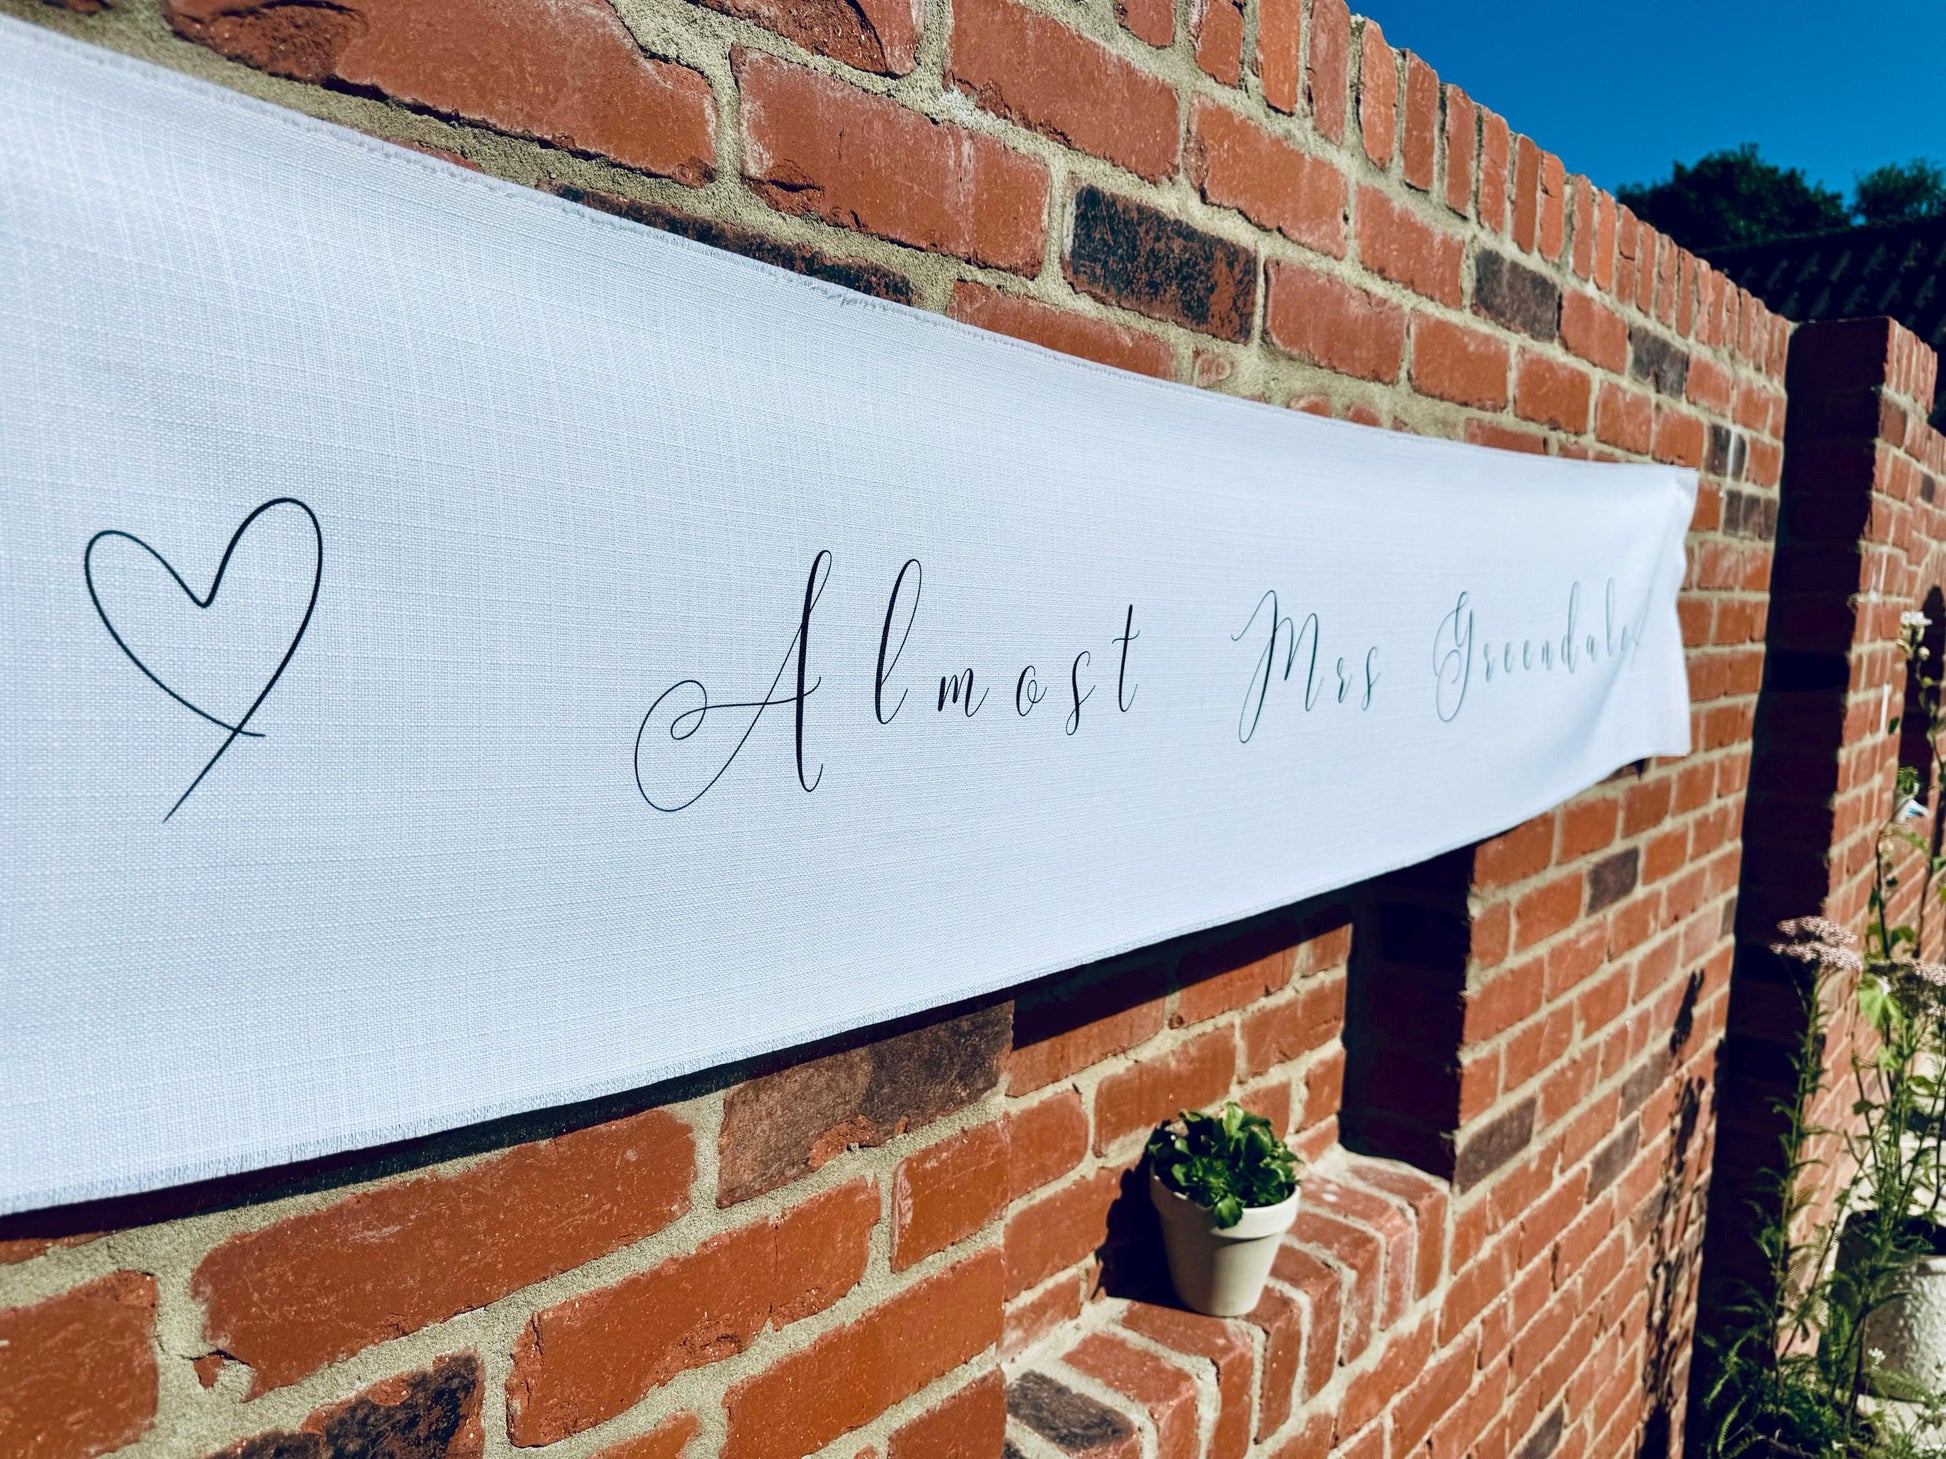 Almost Mrs Greendale